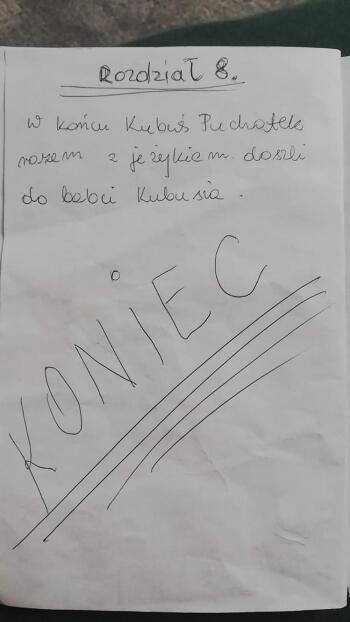 Rozdział 8.
W końcu Kubuś Puchatek
razem z jeżykiem doszli
do babci Kubusia.
KONIEC